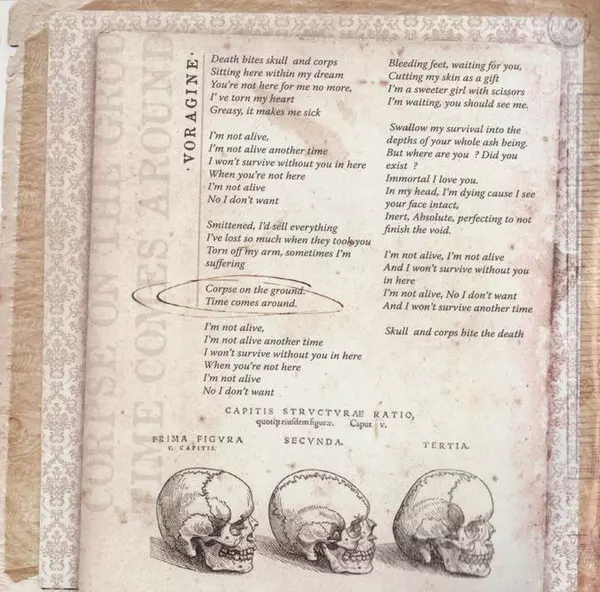 ·VORAGINE·
Death bites skull and corps
Sitting here within my dream
You're not here for me no more,
I' ve torn my heart
Greasy, it makes me sick
I'm not alive,
I'm not alive another time
I won't survive without you in here
When you're not here
I'm not alive
No I don't want
Smittened, I'd sell everything
I've lost so much when they took you
Torn off my arm, sometimes I'm
suffering
Corpse on the ground.
Time comes around.
I'm not alive,
I'm not alive another time
I won't survive without you in here
When you're not here
I'm not alive
No I don't want
Bleeding feet, waiting for you,
Cutting my skin as a gift
I'm a sweeter girl with scissors
I'm waiting, you should see me.
Swallow my survival into the
depths of your whole ash being.
But where are you ? Did you
exist ?
Immortal I love you.
In my head, I'm dying cause I see
your face intact,
Inert, Absolute, perfecting to not
finish the void.
I'm not alive, I'm not alive
And I won't survive without you
in here
I'm not alive, No I don't want
And I won't survive another time
Skull and corps bite the death
CORPSE ON THE GROU
TIME COMES AROUND
CAPITIS STRVCTVRAE RATIO,
quotq; eiusdem figuræ. Caput v.
PRIMA FIGVRA
V. CAPITIS.
SECVNDA.
TERTIA.